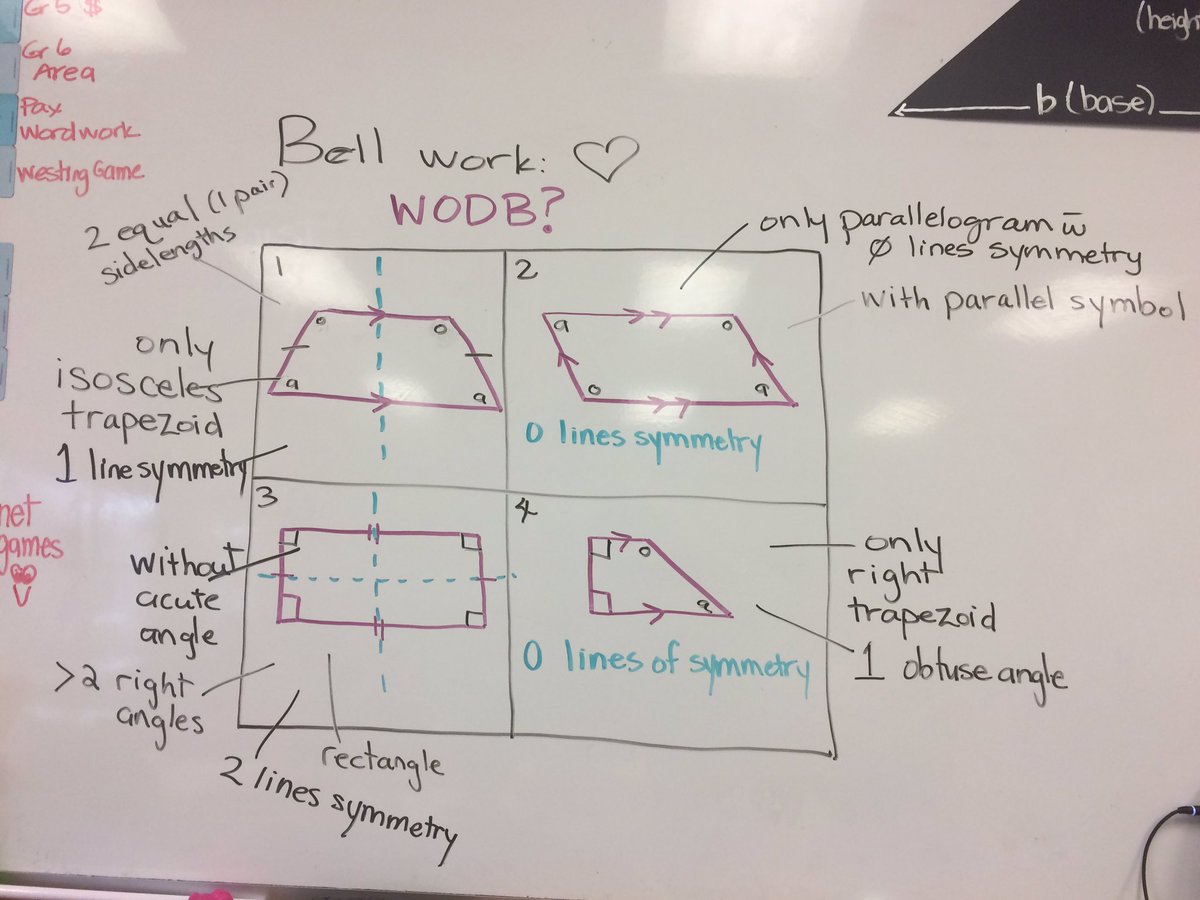 Gr 5 $
Gr 6
Area
Pax
Wordwork
Westing Game
net
games
(heigh
b (base)
Bell work: ♡
WODB?
2 equal (1 pair)
sidelengths
only
isosceles
trapezoid
1 line symmetry
only parallelogram w̄
∅ lines symmetry
with parallel symbol
1
o o
a a
2
a o
o a
0 lines symmetry
3
without
acute
angle
>2 right
angles
2 lines symmetry
rectangle
4
o
a
0 lines of symmetry
only
right
trapezoid
1 obtuse angle